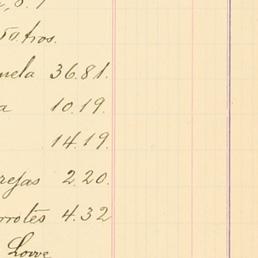 tros.
mela 36.81.
a 10.19.
14.19.
rejas 2.20.
rrotes 4.32
Lowe